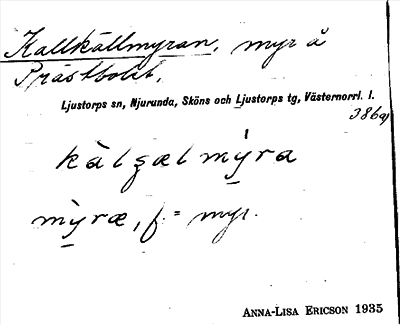 Kallkällmyran, myr å
Prästbolet.
Ljustorps sn, Njurunda, Sköns och Ljustorps tg, Västernorrl. l.
386a)
kàlʂæl mỳra
mỳræ, f. = myr.
ANNA-LISA ERICSON 1935